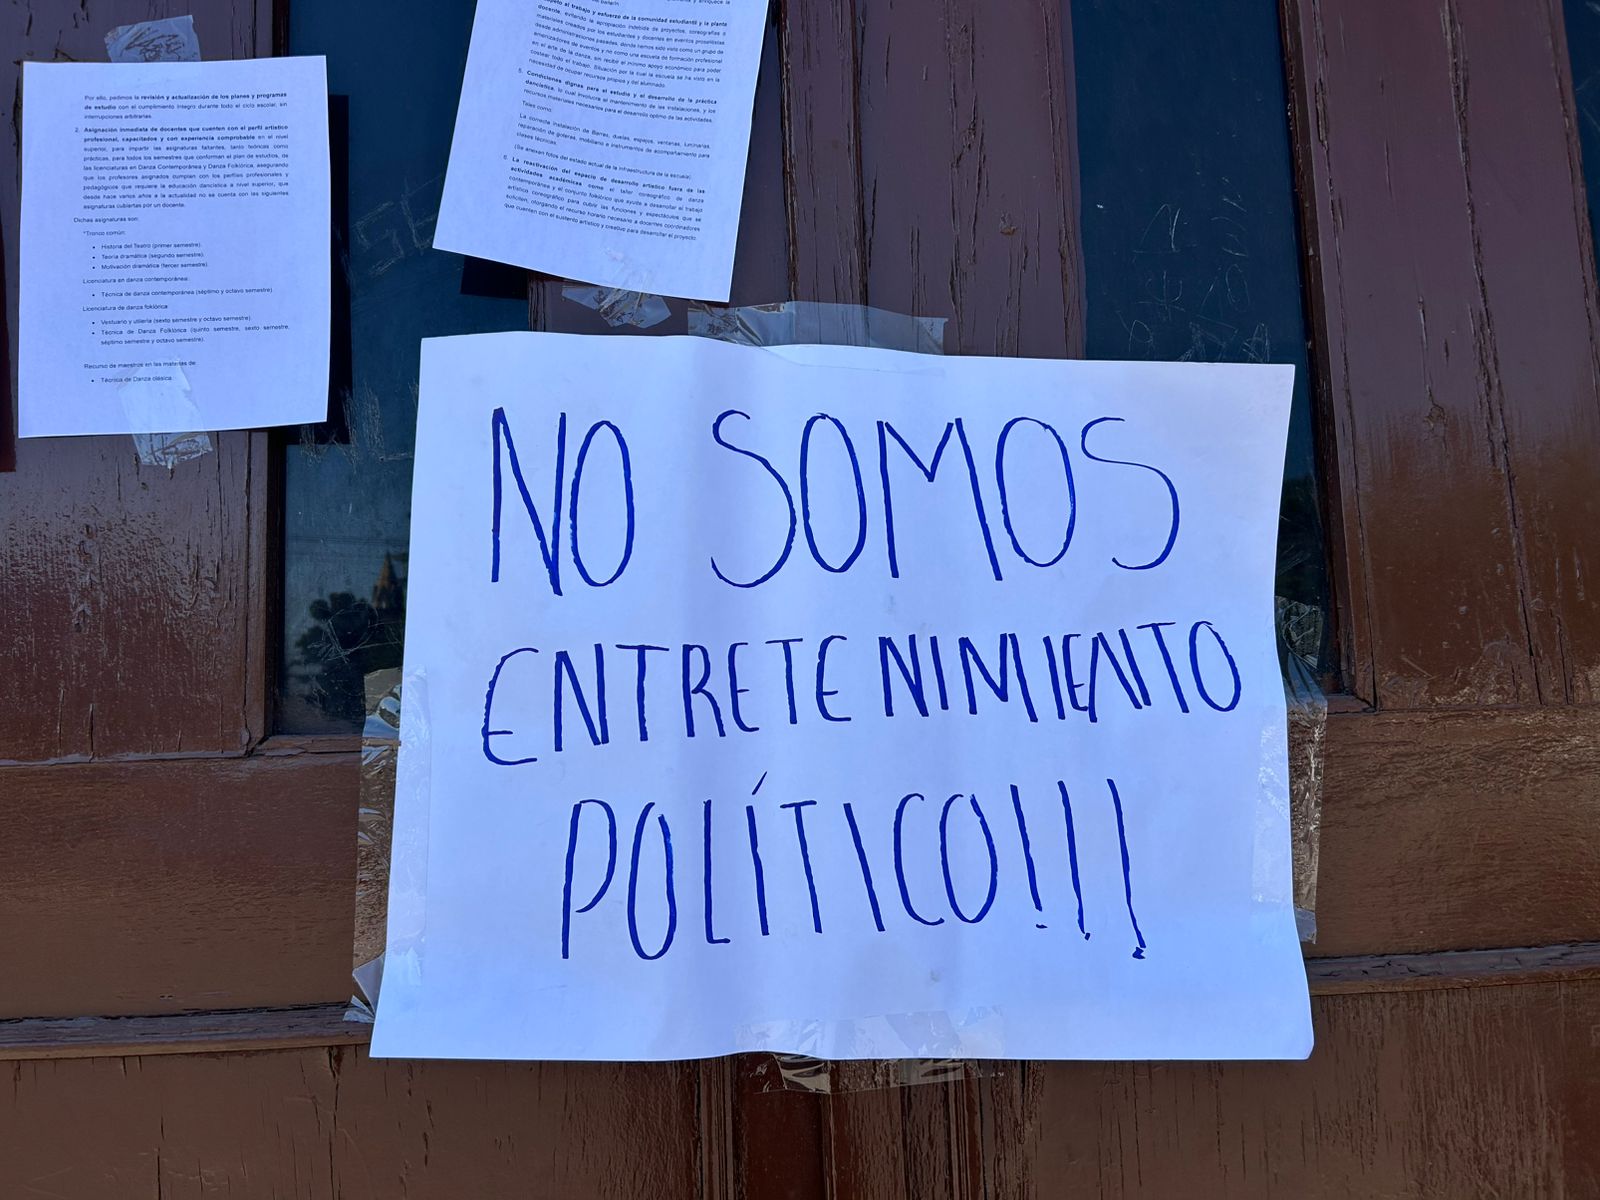 Por ello, pedimos la revisión y actualización de los planes y programas
de estudio con el cumplimiento íntegro durante todo el ciclo escolar, sin
interrupciones arbitrarias.
2. Asignación inmediata de docentes que cuenten con el perfil artístico
profesional, capacitados y con experiencia comprobable en el nivel
superior, para impartir las asignaturas faltantes, tanto teóricas como
prácticas, para todos los semestres que conforman el plan de estudios, de
las licenciaturas en Danza Contemporánea y Danza Folklórica, asegurando
que los profesores asignados cumplan con los perfiles profesionales y
pedagógicos que requiere la educación dancística a nivel superior, que
desde hace varios años a la actualidad no se cuenta con las siguientes
asignaturas cubiertas por un docente.
Dichas asignaturas son:
*Tronco común:
• Historia del Teatro (primer semestre).
• Teoría dramática (segundo semestre).
• Motivación dramática (tercer semestre).
Licenciatura en danza contemporánea:
• Técnica de danza contemporánea (séptimo y octavo semestre).
Licenciatura de danza folklórica
• Vestuario y utilería (sexto semestre y octavo semestre).
• Técnica de Danza Folklórica (quinto semestre, sexto semestre,
séptimo semestre y octavo semestre).
Recurso de maestros en las materias de:
• Técnica de Danza clásica
al trabajo y esfuerzo de la comunidad estudiantil y la planta
docente, evitando la apropiación indebida de proyectos, coreografías o
materiales creados por los estudiantes y docentes en eventos proselitistas
desde administraciones pasadas, donde hemos sido visto como un grupo de
amenizadores de eventos y no como una escuela de formación profesional
en el arte de la danza, sin recibir el mínimo apoyo económico para poder
costear todo el trabajo. Situación por la cual la escuela se ha visto en la
necesidad de ocupar recursos propios y del alumnado.
5. Condiciones dignas para el estudio y el desarrollo de la práctica
dancística, lo cual involucra el mantenimiento de las instalaciones, y los
recursos materiales necesarios para el desarrollo óptimo de las actividades.
Tales como:
La correcta instalación de Barras, duelas, espejos, ventanas, luminarias,
reparación de goteras, mobiliario e instrumentos de acompañamiento para
clases técnicas.
(Se anexan fotos del estado actual de la infraestructura de la escuela)
6. La reactivación del espacio de desarrollo artístico fuera de las
actividades académicas como el taller coreográfico de danza
contemporánea y el conjunto folklórico que ayuda a desarrollar el trabajo
artístico coreográfico para cubrir las funciones y espectáculos que se
soliciten, otorgando el recurso horario necesario a docentes coordinadores
que cuenten con el sustento artístico y creativo para desarrollar el proyecto.
NO SOMOS
ENTRETENIMIENTO
POLÍTICO!!!